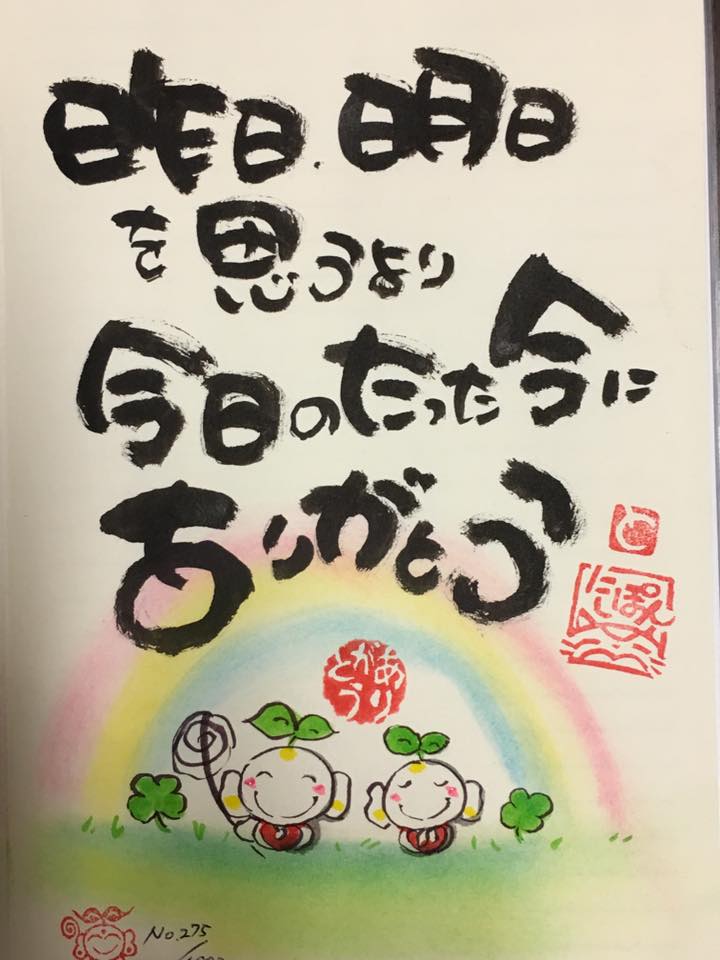 昨日、明日
を思うより
今日のたった今に
ありがとう
ありがとう
No.275